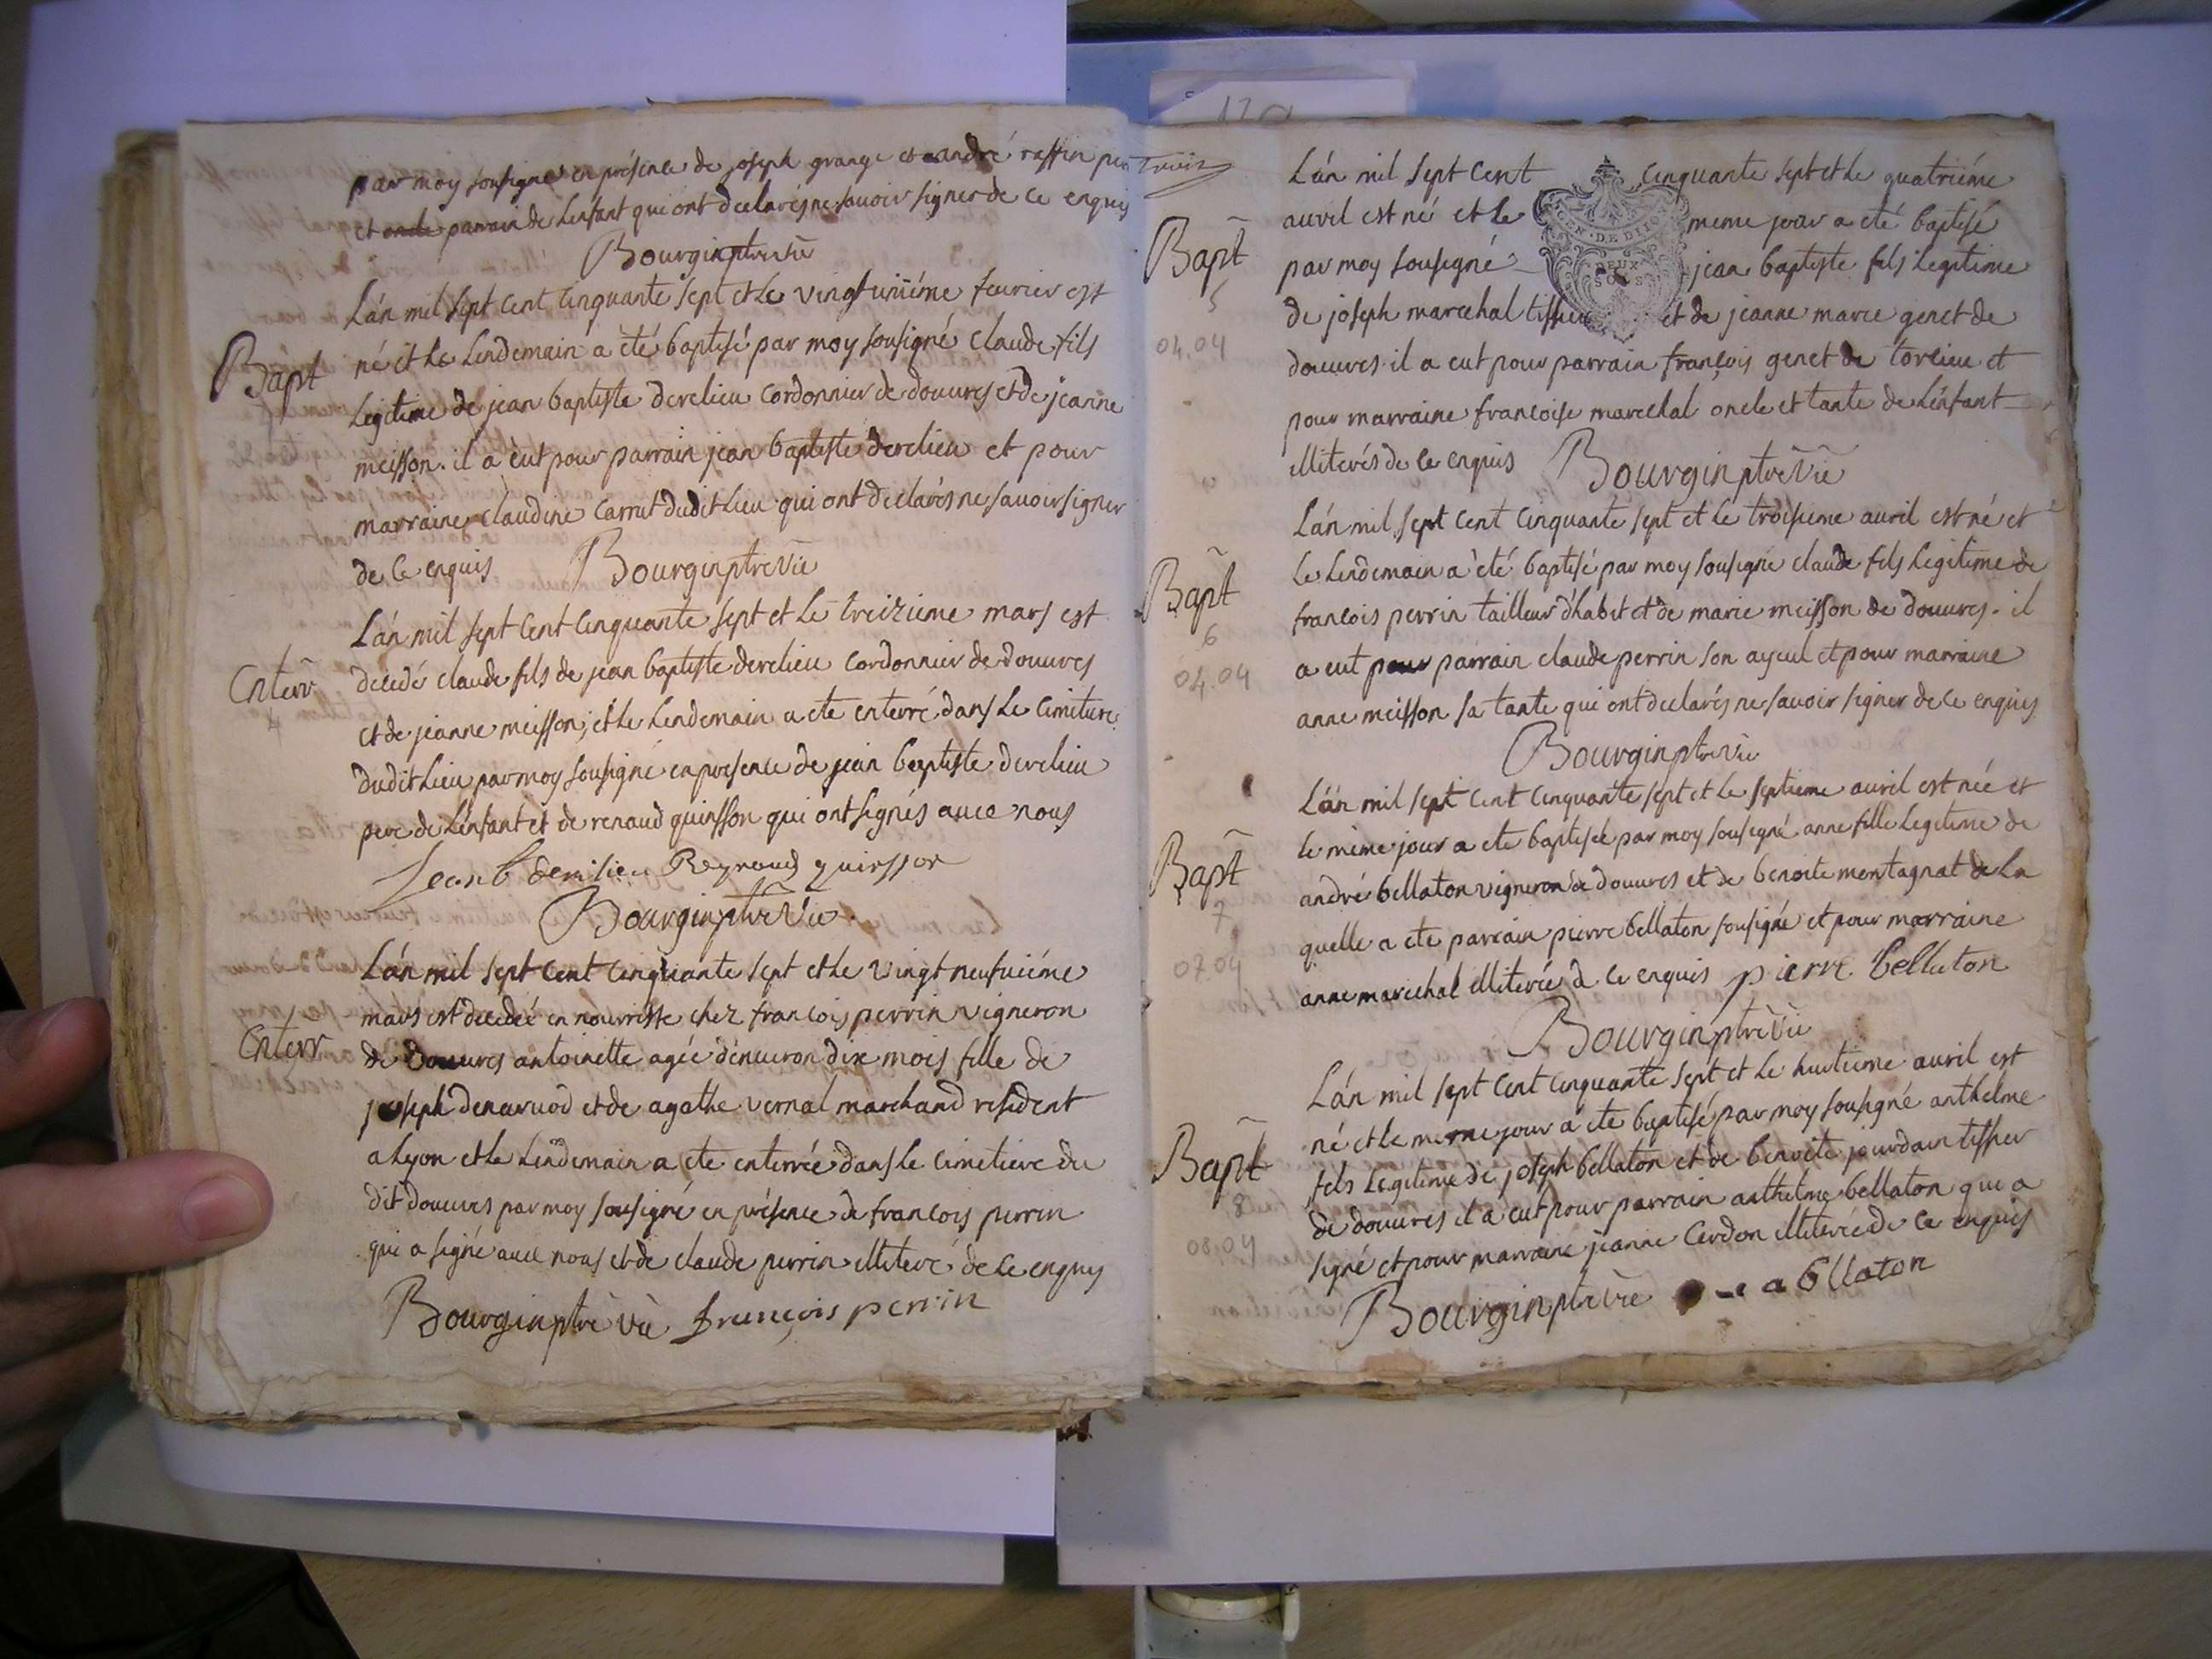 par moy sousigné en présence de joseph grange et andré raffin per
et oncle parrain de Lenfant qui ont declarés ne savoir signer de ce enquis
Bourgin ptre vic
Lán mil sept cent cinquante sept et Le vingt uniéme feurier est
Bapt
né et Le Lendemain a été baptisé par moy sousigné Claude fils
Legitime de jean baptiste derelieu cordonnier de douures et de jeanne
meisson. il a eut pour parrain jean baptiste derelieu et pour
marraine claudine Carrut dudit Lieu qui ont declarés ne savoir signer
de ce enquis Bourgin ptre vic
Lán mil sept cent cinquante sept et Le treizieme mars est
Enterr
decedé claude fils de jean baptiste derelieu cordonnier de douures
4
et de jeanne meisson, et Le Lendemain a ete enterré dans Le cimitiere
dudit Lieu par moy sousigné en presence de jean baptiste derelieu
pere de Lénfant et de renaud quinsson qui ont signés avec nous
Jean b Reynaud quinsson
Bourgin ptre vic
Lán mil sept cent cinquante sept et Le vingt neufuiéme
mars est decedée en nourrisse chez francois perrin vigneron
Enterr
de douures antoinette agée d'enuiron dix mois fille de
joseph denaruod et de agathe vernal marchand resident
a Lyon et Le Lendemain a ete enterrée dans Le cimetiere du
dit douures par moy sousigné en présence de francois perrin
qui a signé avec nous et de claude perrin illiteré de ce enquis
Bourgin ptre vic françois perrin
trois
Lán mil sept cent cinquante sept et Le quatriéme
auril est né et le meme jour a eté baptisé
GEN. DE DIJON
Bapt
par moy sousigné jean baptiste fils Legitime
DEUX SOLS
5
de joseph marechal tissieu et de jeanne marie genet de
04.04
douures. il a eut pour parrain françois genet de torcieu et
pour marraine francoise marechal oncle et tante de Lénfant
illiterés de ce enquis Bourgin ptre vic
Lán mil sept cent cinquante sept et Le troisieme auril est né et
Bapt
Le Lendemain a eté baptisé par moy sousigné claude fils Legitime de
6
francois perrin tailleur d'habit et de marie meisson de douures. il
04.04
a eut pour parrain claude perrin son ayeul et pour marraine
anne meisson sa tante qui ont declarés ne savoir signer de ce enquis
Bourgin ptre vic
Lán mil sept cent cinquante sept et Le septieme auril est née et
Bapt
le même jour a ete baptisée par moy sousigné anne fille Legitime de
7
andré bellaton vigneron de douures et de benoite montagnat de La
07.04
quelle a ete parrain pierre bellaton sousigné et pour marraine
anne marechal illiterée de ce enquis pierre bellaton
Bourgin ptre vic
Lán mil sept cent cinquante sept et Le huitieme auril est
Bapt
né et Le meme jour a ete baptisé par moy sousigné anthelme
8
fils Legitime de joseph bellaton et de benoite jourdain tissieu
08.04
de douures il a eut pour parrain anthelme bellaton qui a
signé et pour marraine jeanne Cerdon illiterée de ce enquis
Bourgin ptre vic a bllaton